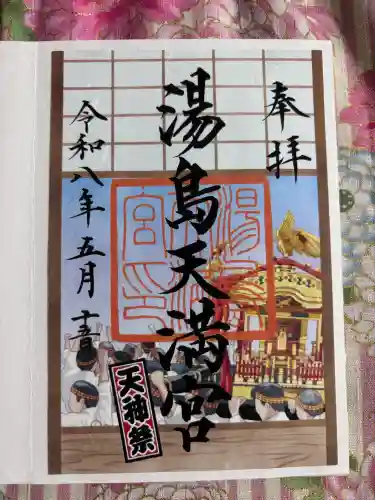 奉拝
湯島天満宮
令和八年五月十一日
天神祭